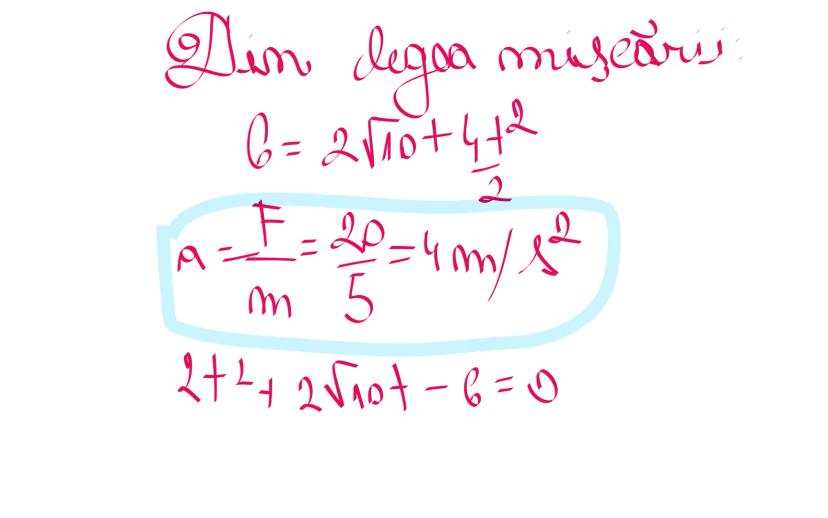 Din legea mișcării:
6 = 2√10 + 4t²/2
a = F/m = 20/5 = 4 m/s²
2t² + 2√10t - 6 = 0